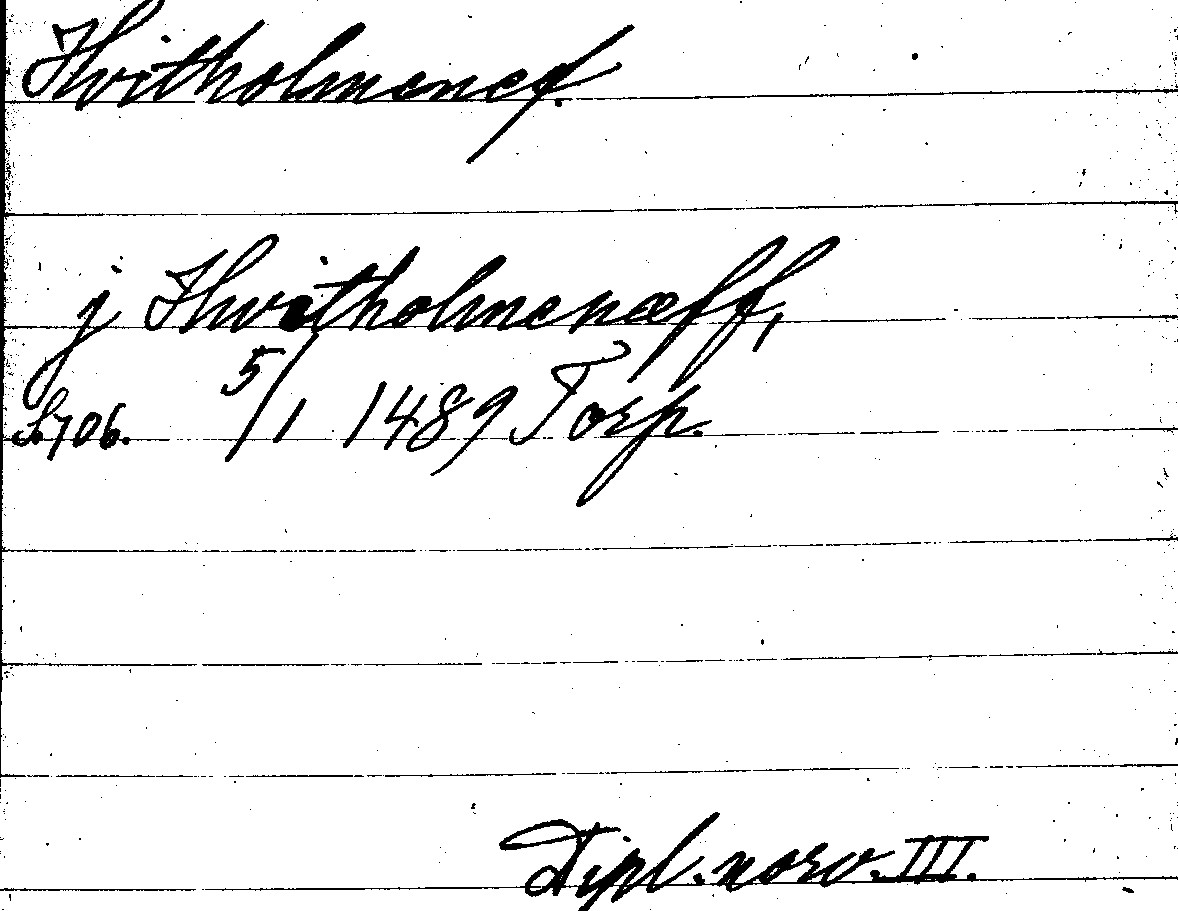 Hvitholmenef.
j Hwitholmenæff,
S. 706. 5/1 1489 Torp.
Dipl. norv. III.